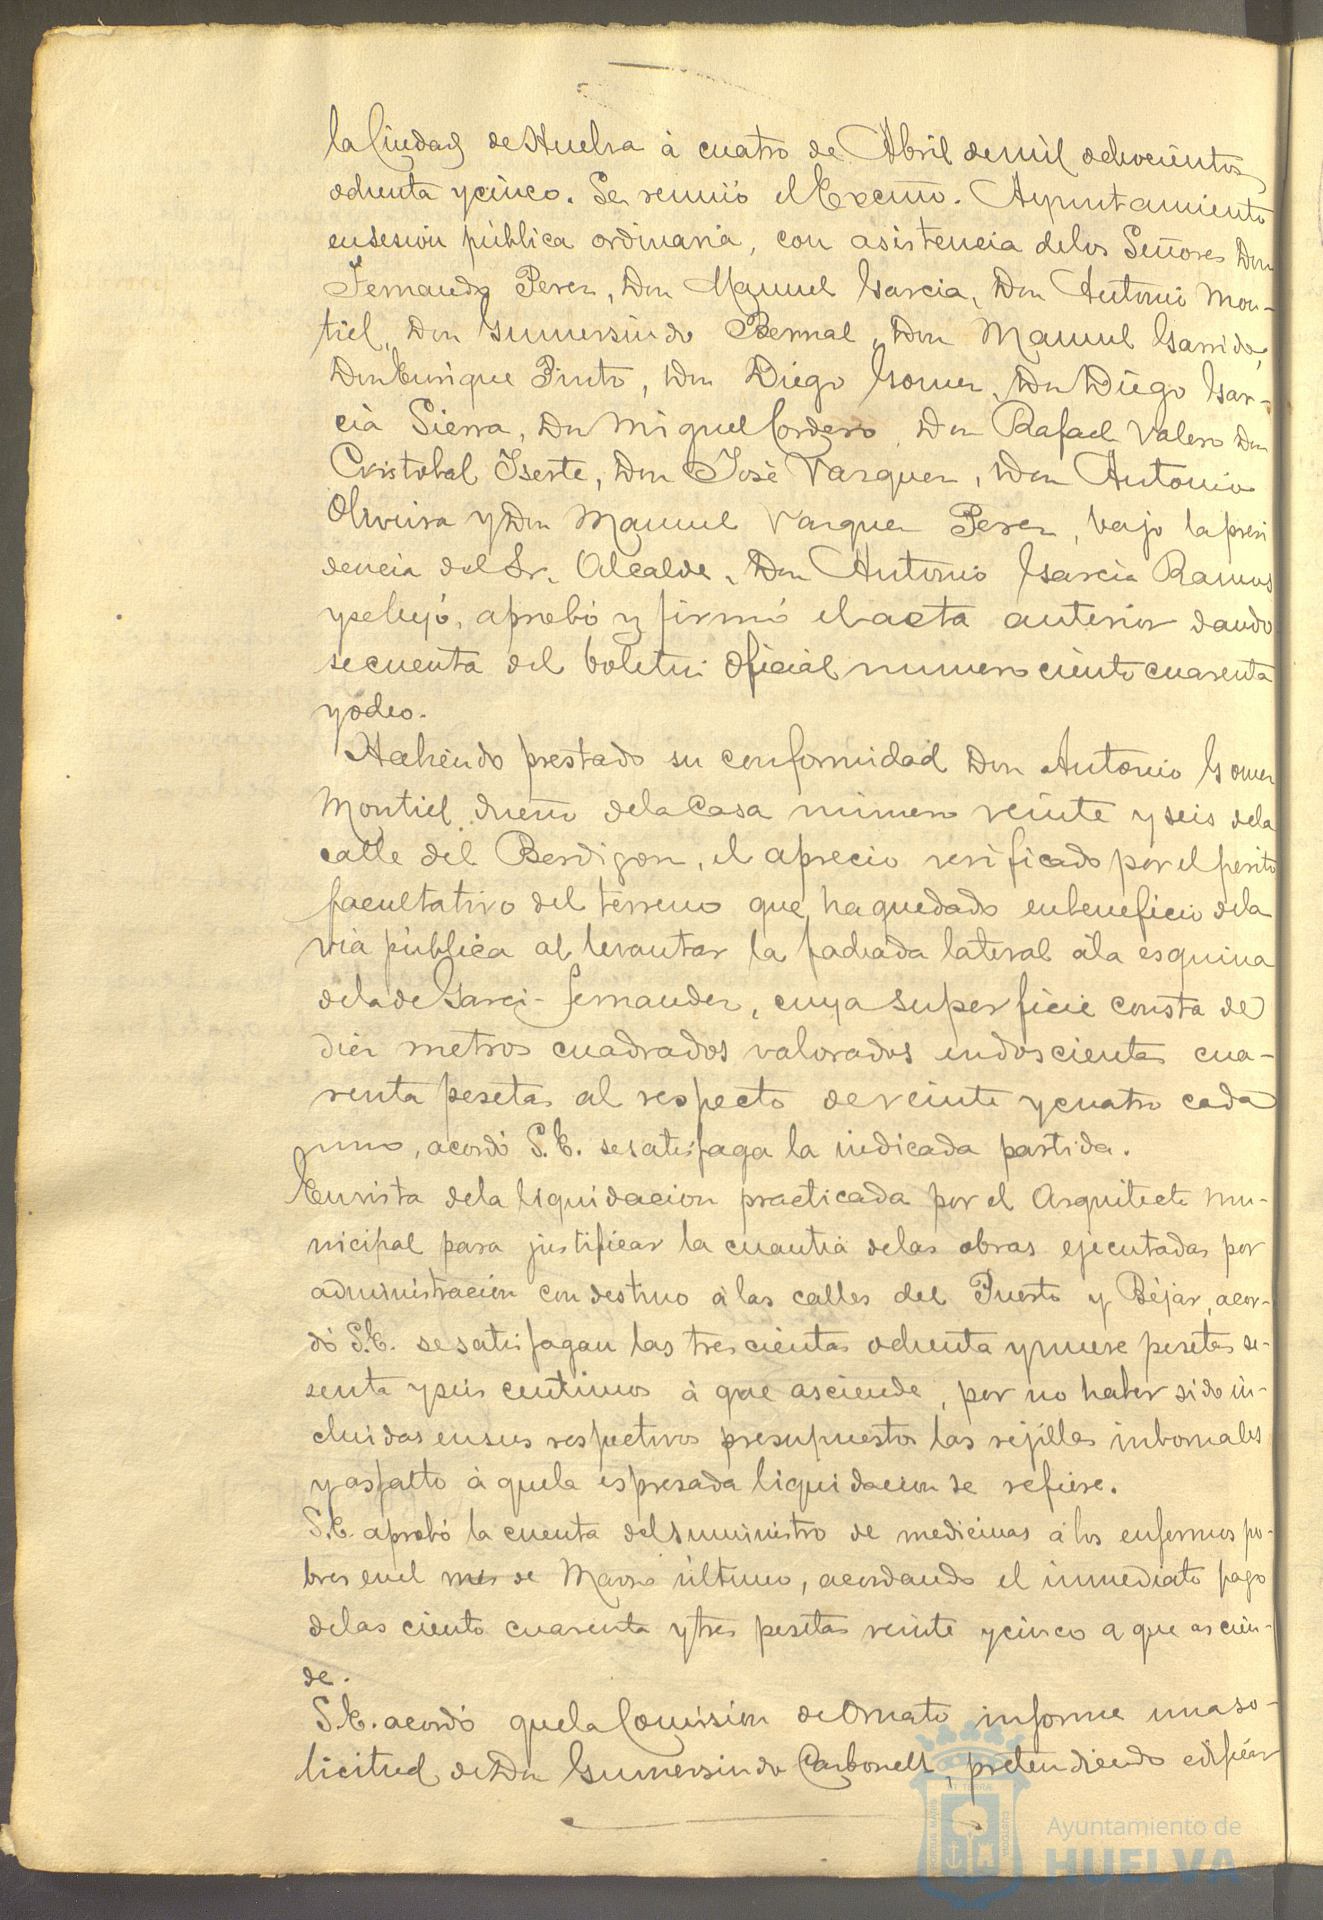 la Ciudad de Huelva á cuatro de Abril de mil ochocientos
ochenta y cinco. Se reunió el Excmo. Ayuntamiento
en sesion pública ordinaria, con asistencia de los Señores Don
Fernando Perez, Don Manuel Garcia, Don Antonio Mon-
tiel, Don Gumersindo Bernal, Don Manuel Garrido,
Don Enrique Pinto, Don Diego Gomez, Don Diego Gar-
cia Sierra, Don Miguel Cordero, Don Rafael Valero Don
Cristobal Iserte, Don José Vazquez, Don Antonio
Oliveira y Don Manuel Vazquez Perez, bajo la presi
dencia del Sr. Alcalde, Don Antonio Garcia Ramos
y se leyó, aprobó y firmó el acta anterior dando
se cuenta del boletin oficial numero ciento cuarenta
y ocho.
Habiendo prestado su conformidad Don Antonio Gomez
Montiel dueño de la Casa número veinte y seis de la
calle del Berdigon, el aprecio verificado por el perito
facultativo del terreno que ha quedado en beneficio de la
via pública al levantar la fachada lateral á la esquina
de la de Garci-Fernandez, cuya superficie consta de
diez metros cuadrados valorados en doscientas cua-
renta pesetas al respecto de veinte y cuatro cada
uno, acordó S.E. se satisfaga la indicada partida.
En vista de la liquidacion practicada por el Arquitecto mu-
nicipal para justificar la cuantia de las obras ejecutadas por
administracion con destino á las calles del Puerto y Béjar, acor-
dó S.E. se satisfagan las trescientas ochenta y nueve pesetas se-
senta y seis centimos á que asciende, por no haber sido in-
cluidas en sus respectivos presupuestos las rejillas inbornales
y asfalto á que la espresada liquidacion se refiere.
S.E. aprobó la cuenta del suministro de medicinas á los enfermos po-
bres en el mes de Marzo último, acordando el inmediato pago
de las ciento cuarenta y tres pesetas veinte y cinco a que ascien-
de.
S.E. acordó que la Comision de Ornato informe una so-
licitud de Don Gumersindo Carbonell, pretendiendo edificar
Ayuntamiento de
HUELVA